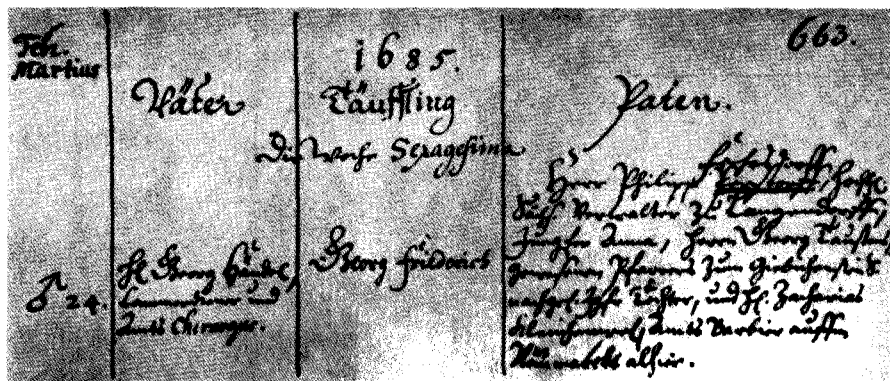 Feb.
Martius
1685.
663.
Väter
Täuffling
Paten.
Die Woche Sexagesima
♂ 24.
Hl. Georg Händel,
Cammerdiener und
Amts Chirurgus.
Georg Friederich
Herr Philipp
Sächs. Verwalter zu Langendorff,
Jungfer Anna, Herrn Georg Taustens
gewesenen Pfarrers zum Giebichenstein
nachgel. Tochter, und Hl. Zacharias
Kleinhempel, Amts Barbier auffn
Neumarckt alhier.